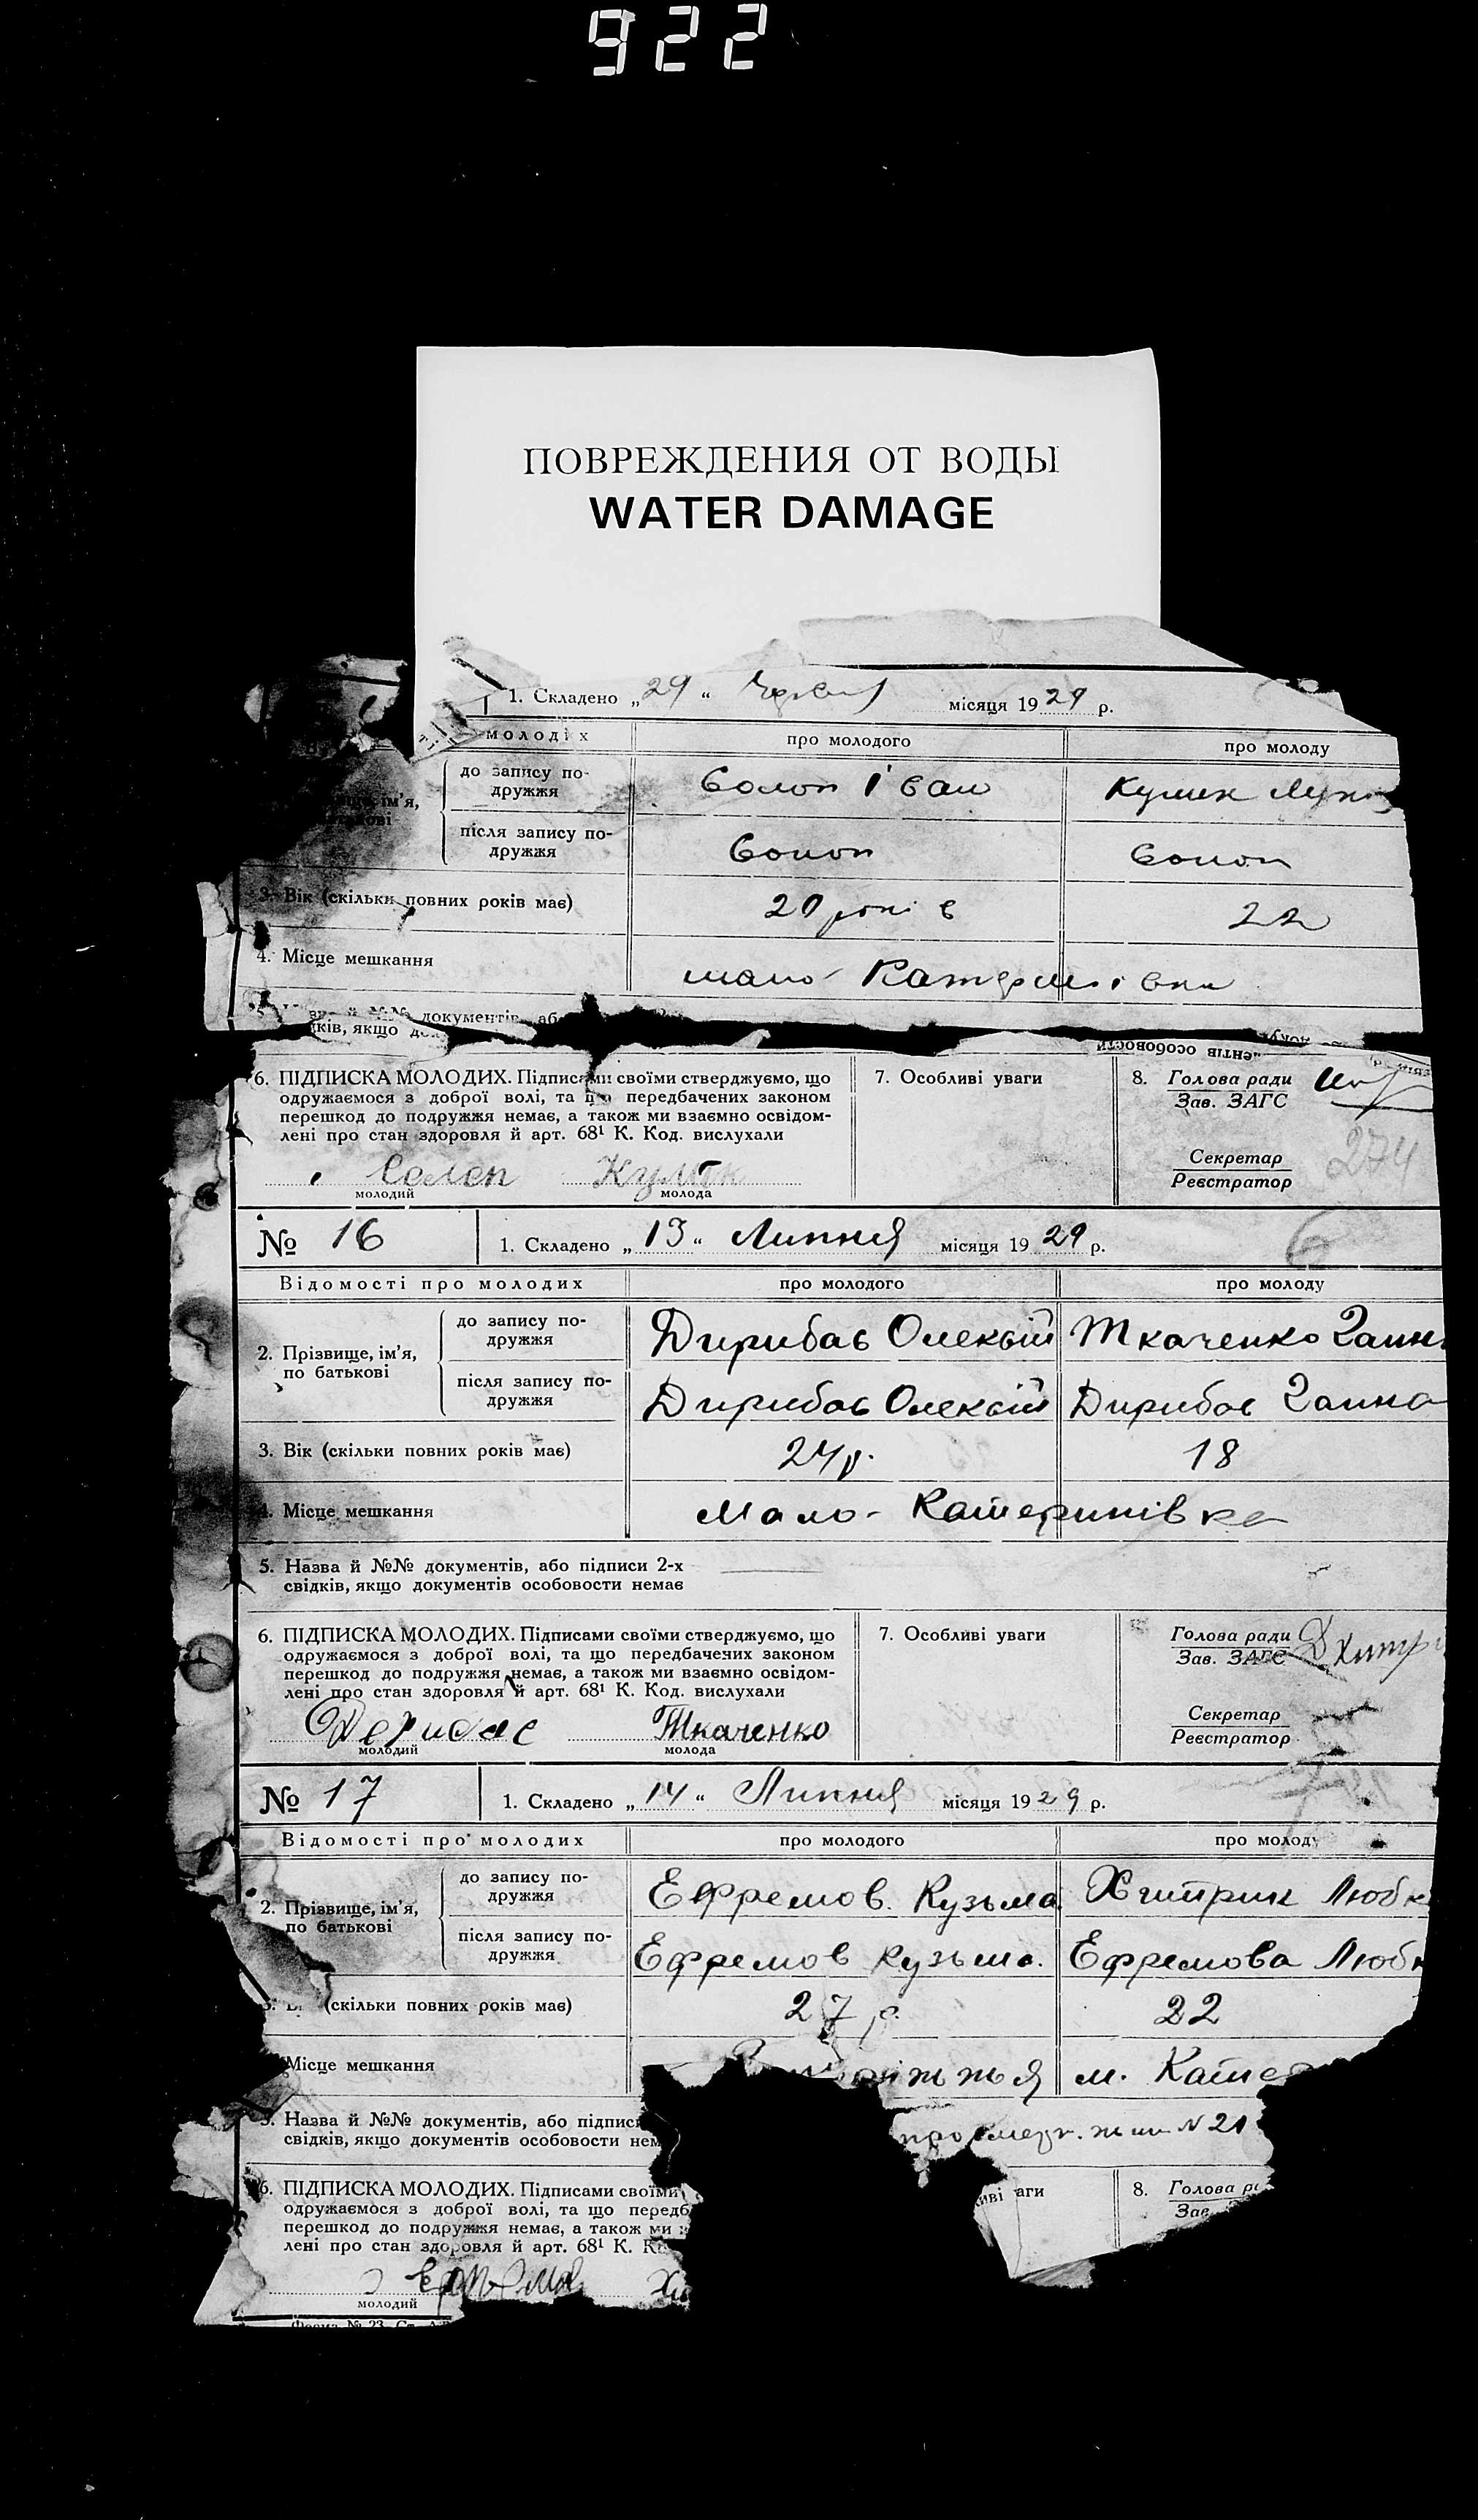 922
ПОВРЕЖДЕНИЯ ОТ ВОДЫ
WATER DAMAGE
1. Складено „29“ місяця 1929 р.
молодих про молодого про молоду
до запису по-
дружжя
ім'я,
після запису по-
дружжя
3. Вік (скільки повних років має) 20 років 22
4. Місце мешкання мало-Катеринівка
документів, аб
ків, якщо
6. ПІДПИСКА МОЛОДИХ. Підписами своїми стверджуємо, що
одружаємося з доброї волі, та що передбачених законом
перешкод до подружжя немає, а також ми взаємно освідом-
лені про стан здоровля й арт. 68¹ К. Код. вислухали
молодий молода
7. Особливі уваги
8. Голова ради
Зав. ЗАГС
Секретар
Реєстратор
274
№ 16 1. Складено „13“ Липня місяця 1929 р.
Відомості про молодих про молодого про молоду
2. Прізвище, ім'я,
по батькові
до запису по-
дружжя
Дирибас Олексій Ткаченко Ганн
після запису по-
дружжя
Дирибас Олексій Дирибас Ганна
3. Вік (скільки повних років має) 24 р. 18
4. Місце мешкання Мало-Катеринівка
5. Назва й №№ документів, або підписи 2-х
свідків, якщо документів особовости немає
6. ПІДПИСКА МОЛОДИХ. Підписами своїми стверджуємо, що
одружаємося з доброї волі, та що передбачених законом
перешкод до подружжя немає, а також ми взаємно освідом-
лені про стан здоровля й арт. 68¹ К. Код. вислухали
Дерибас Ткаченко
молодий молода
7. Особливі уваги
Голова ради
Зав. ЗАГС
Секретар
Реєстратор
№ 17 1. Складено „14“ Липня місяця 1929 р.
Відомості про молодих про молодого про молоду
2. Прізвище, ім'я,
по батькові
до запису по-
дружжя
Ефремов Кузьма Хитрик Любк
після запису по-
дружжя
Ефремов Кузьма. Ефремова Любк
(скільки повних років має) 27 р. 22
Місце мешкання м. Кате
5. Назва й №№ документів, або підписи
свідків, якщо документів особовости нем
N 21
6. ПІДПИСКА МОЛОДИХ. Підписами своїми
одружаємося з доброї волі, та що передб
перешкод до подружжя немає, а також ми
лені про стан здоровля й арт. 68¹ К.
молодий
иві ваги
8. Голова р
Зав.